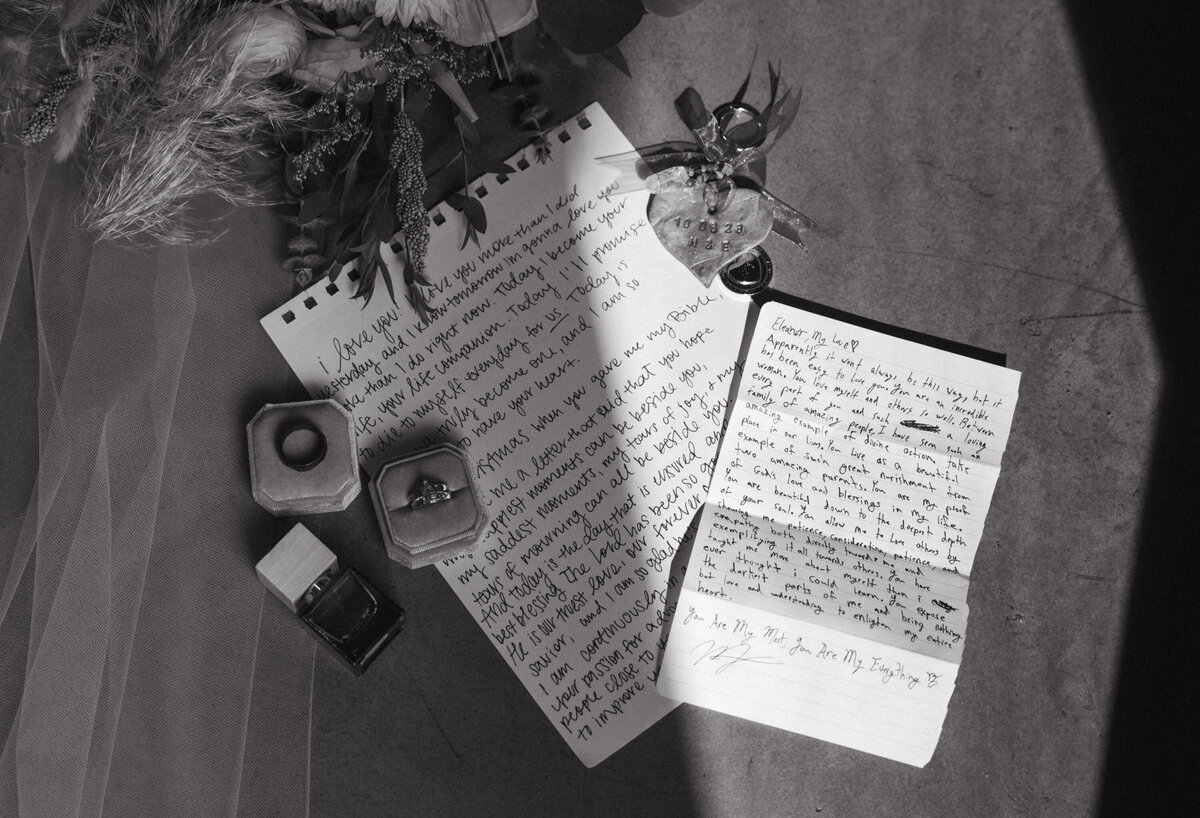 i love you! love you more than I did
yesterday, and i know tomorrow im gonna love you
than I do right now. Today i become your
ife, your life companion. Today i'll promise
to die to myself everyday for us. Today is
truly become one, and i am so
to have your heart.
istmas when you gave me my Bible
me a letter that said that you hope
happiest moments can be beside you,
my saddest moments, my tears of joy, & my
tears of mourning can all be beside you
And today is the day that is ensured and
best blessing The Lord has been so good
He is our truest love. our forever
savior, and i am so glad he
I am continuously in a
your passion for advi
people close to
to improve
10 06 23
H & E
Eleanor, My Love ♡
Apparently it wont always be this way, but it
has been easy to love you. You are an incredible
woman. You love myself and others so well. Between
every part of you and such a loving
family of amazing people I have seen such an
amazing example of divine action take
place in our lives. You live as a beautiful
example of such great nurishment from
two amazing parents. You are my proof
of God's love and blessings in my life.
You are beautiful down to the deepest depth
of your soul. You allow me to love others by
showing me patience, consideration, patience, and
empathy both directly towards me and
exemplifying it all towards others. You have
taught me more about myself than i
ever thought i could learn. You expose
the darkest parts of me and bring nothing
but love and understanding to enlighten my entire
heart.
You Are My Most, You Are My Everything